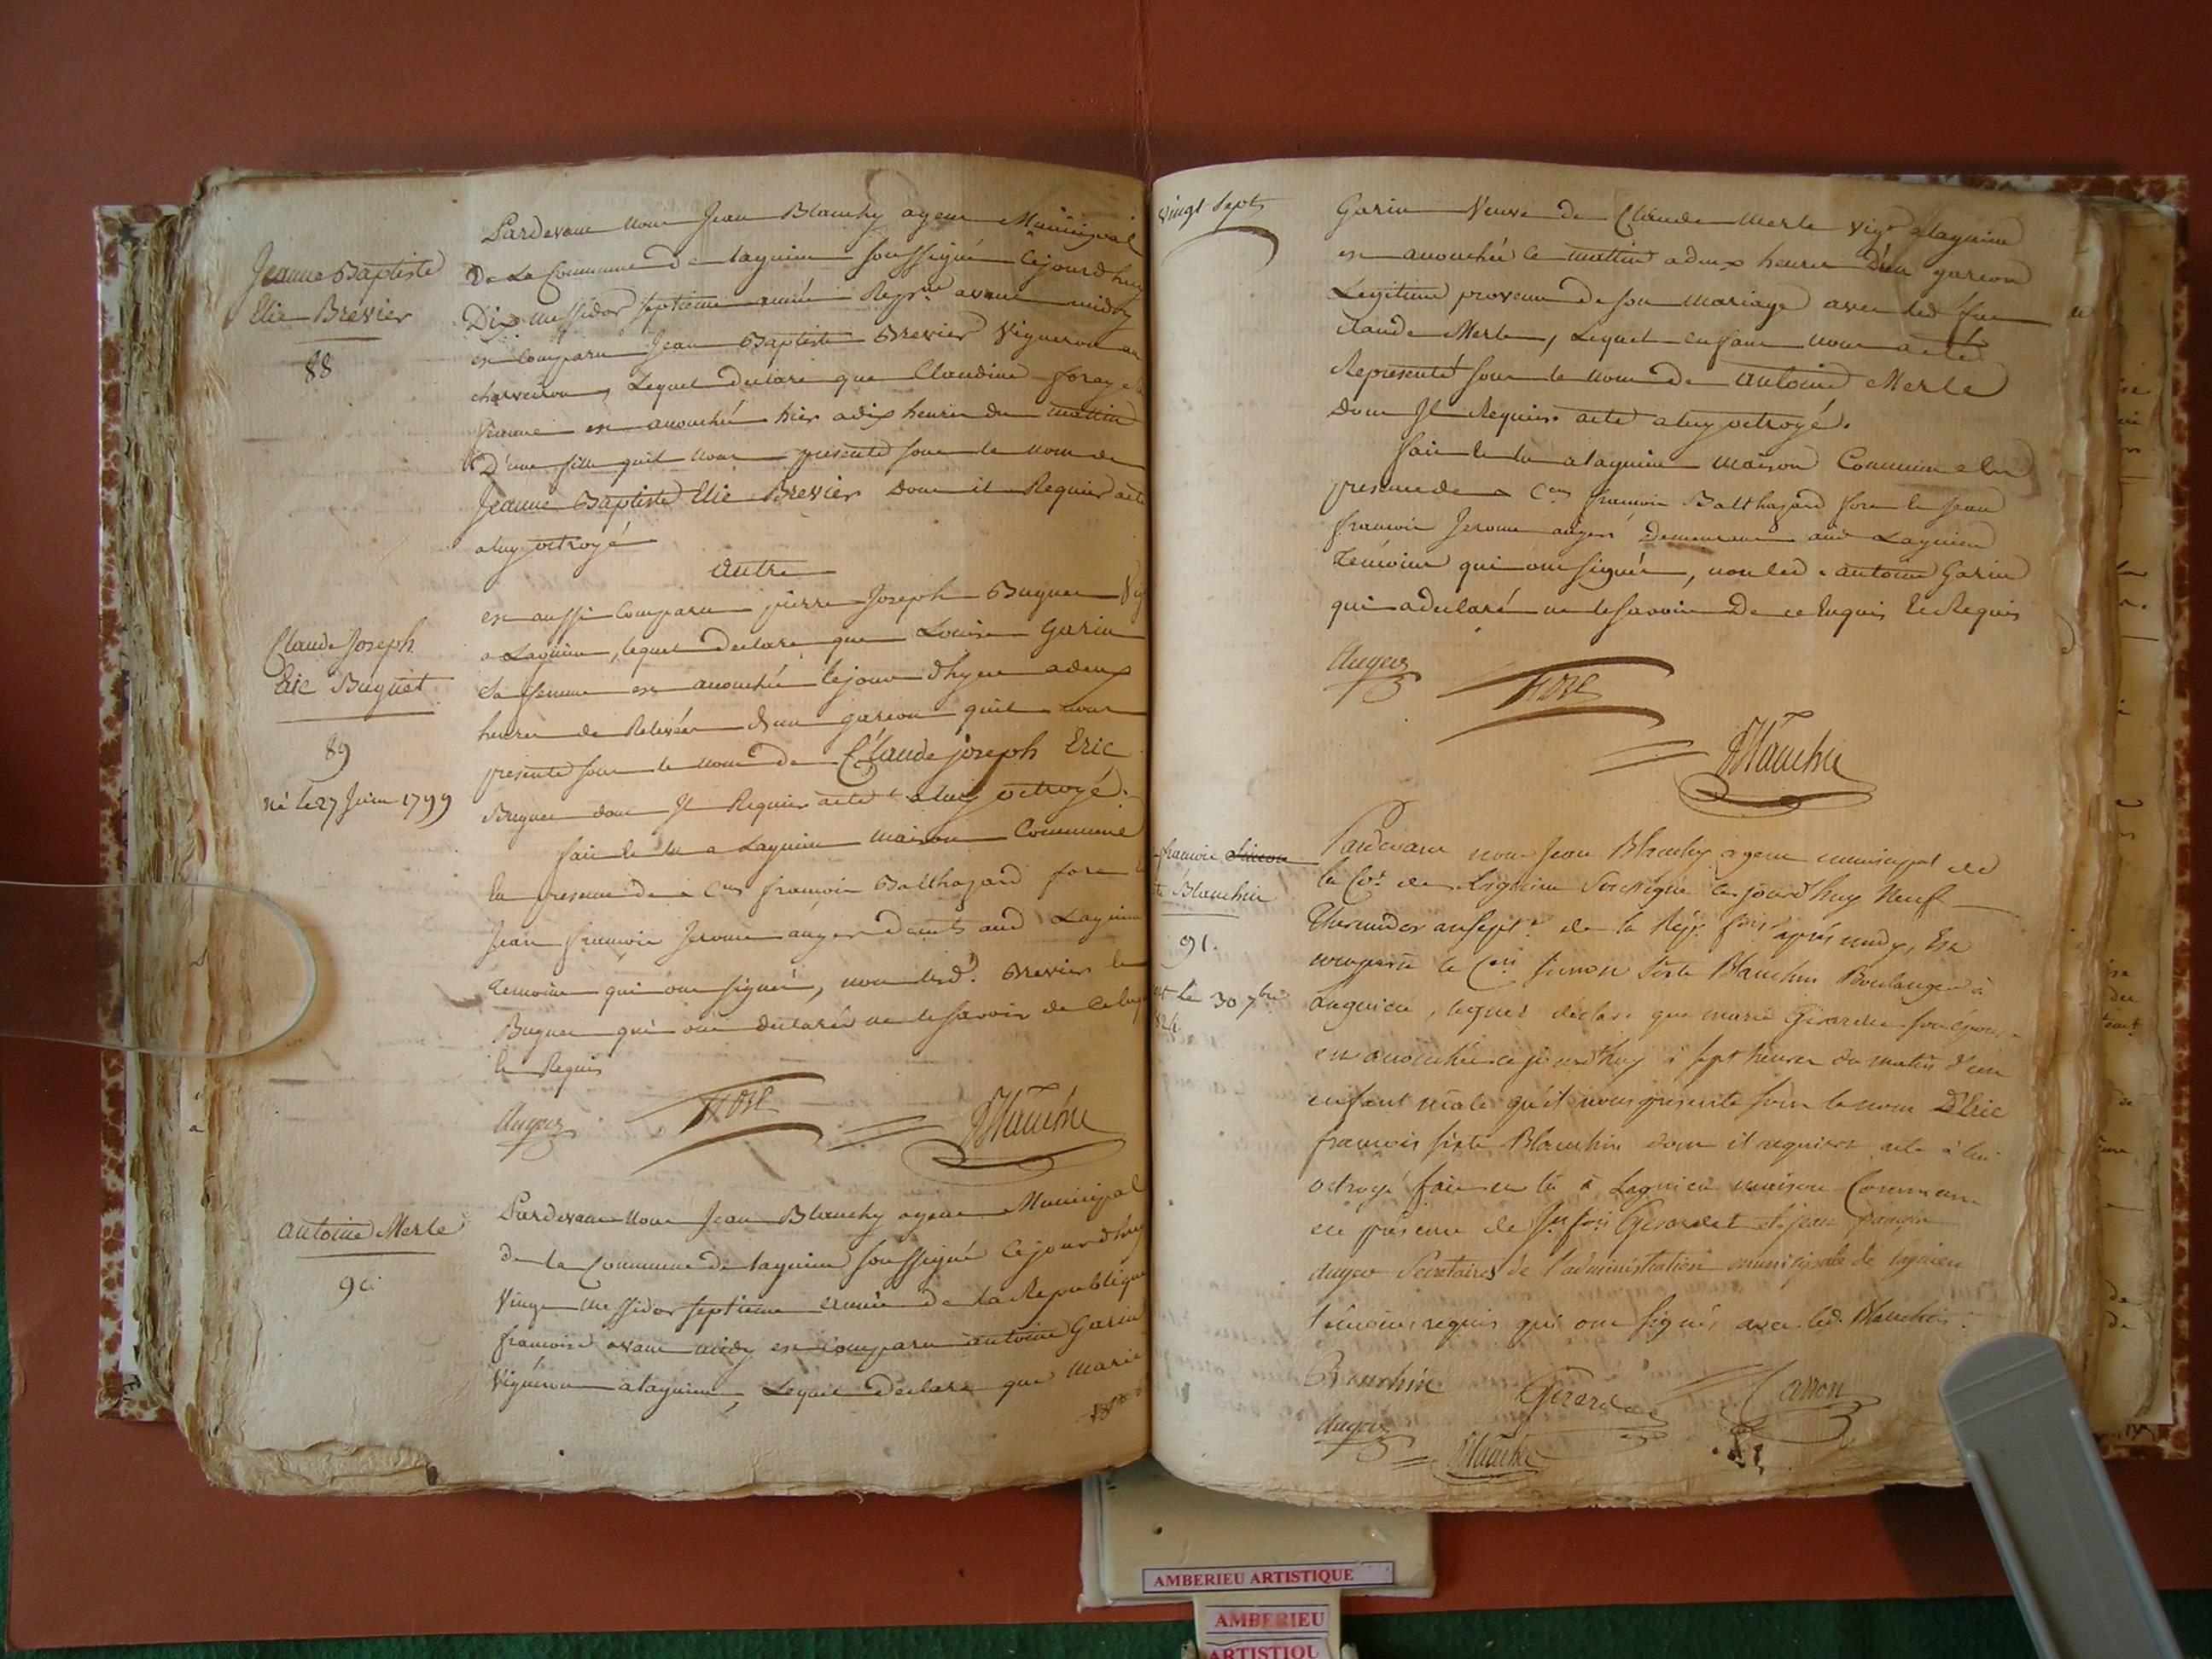 Jeanne Baptiste
Elie Brevier
88
Pardevant nous Jean Blanchy agent Municipal
De La Commune de lagnieu soussigné Cejourdhuy
Dix messidor septieme année Repne avant midy
est Comparu Jean Baptiste Brevier Vigneron au
charveiron, Lequel declare que Claudine foray
femme est accouchée hier a dix heures du mattin
D'une fille quil nous presente sous le nom de
Jeanne Baptiste Elie Brevier Dont il Requier acte
a luy octroyé
Autre
Claude Joseph
Eric Buguet
89
né le 27 Juin 1799
est aussi Comparu pierre Joseph Buguet Vig
a Lagnieu, lequel declare que Louise Garin
Sa femme est accouchée cejourdhyer a deux
heures de Relevée d'un garcon quil nous
presente sous le nom de Claude joseph Eric
Buguet dont Il Requier acte a luy octroyé.
fait et lu a Lagnieu maison Commune
En presence de Cens francois Balthazard fore et
Jean francois Jerome auger demts aud Lagnieu
temoins qui ont signés, non lesd. Brevier et
Buguet qui ont declarés ne le savoir de ce
Et Requis
Auger fore Blanchi
Antoine Merle
90
Pardevant Nous Jean Blanchy agent Municipal
de la Commune de lagnieu soussigné Cejourdhuy
Vingt messidor septieme année de la Republique
francoise avant midy est Comparu antoine Garin
Vigneron a lagnieu, Lequel Declare que Marie
Vingt Sept
Garin Veuve de Claude Merle vigr a lagnieu
est accouchée ce mattin a deux heures D'un garcon
Legitime provenu de son mariage avec led feu
claude Merle, Lequel enfant nous a eté
Representé sous le nom de Antoine Merle
Dont Il Requier acte a luy octroyé.
fait et lu a lagnieu maison Commune en
presence de Cens francois Balthazard fore et Jean
francois Jerome auger Demeurant aud Lagnieu
Temoins qui ont signés, non led. antoine Garin
qui a declaré ne le savoir De ce Enquis Et Requis
Auger fore Blanchi
francois Simon
Blanchin
91.
le 30 7bre
Pardevant nous Jean Blanchy agent municipal de
la Coe de Lagnieu Soussigné cejourdhuy Neuf
Thermidor an sept.e de la Rép. fse après midy, Est
comparu le Cen Simon Sixte Blanchin Boulanger à
Lagnieu, lequel déclare que marie Girardin son épouse
est accouchée cejourdhuy à sept heures du matin d'un
enfant mâle qu'il nous présente sous le nom D'Eric
francois sixte Blanchin dont il requiert acte à lui
octroyé fait et lu à Lagnieu maison Commune
en présence de Jn fois Girardet et jean françois
Auger Secretaires de l'administration municipale de lagnieu
témoins requis qui ont signés avec led. Blanchin.
Blanchin Girardet Canon
Auger Blanchi
AMBERIEU ARTISTIQUE
AMBERIEU
ARTISTIQU